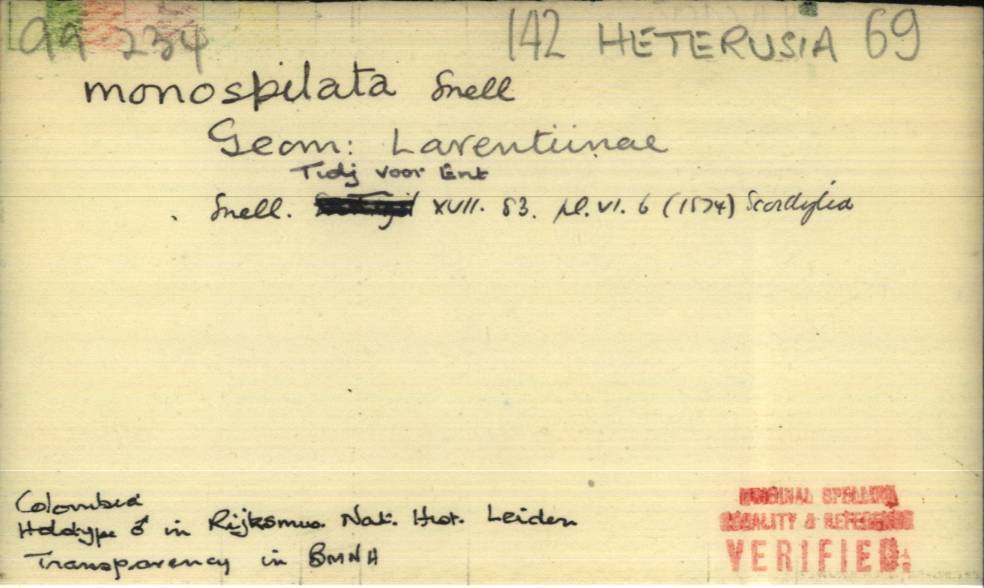 99 234 142 HETERUSIA 69
monospilata Snell
Geom: Larentiinae
Tidj voor Ent
Snell. XVII. 83. pl. VI. 6 (1874) Scordylia
Colombia
Holotype ♂ in Rijksmus. Nat. Hist. Leiden
Transparency in BMNH
ORIGINAL SPELLING
LOCALITY & REFERENCE
VERIFIED